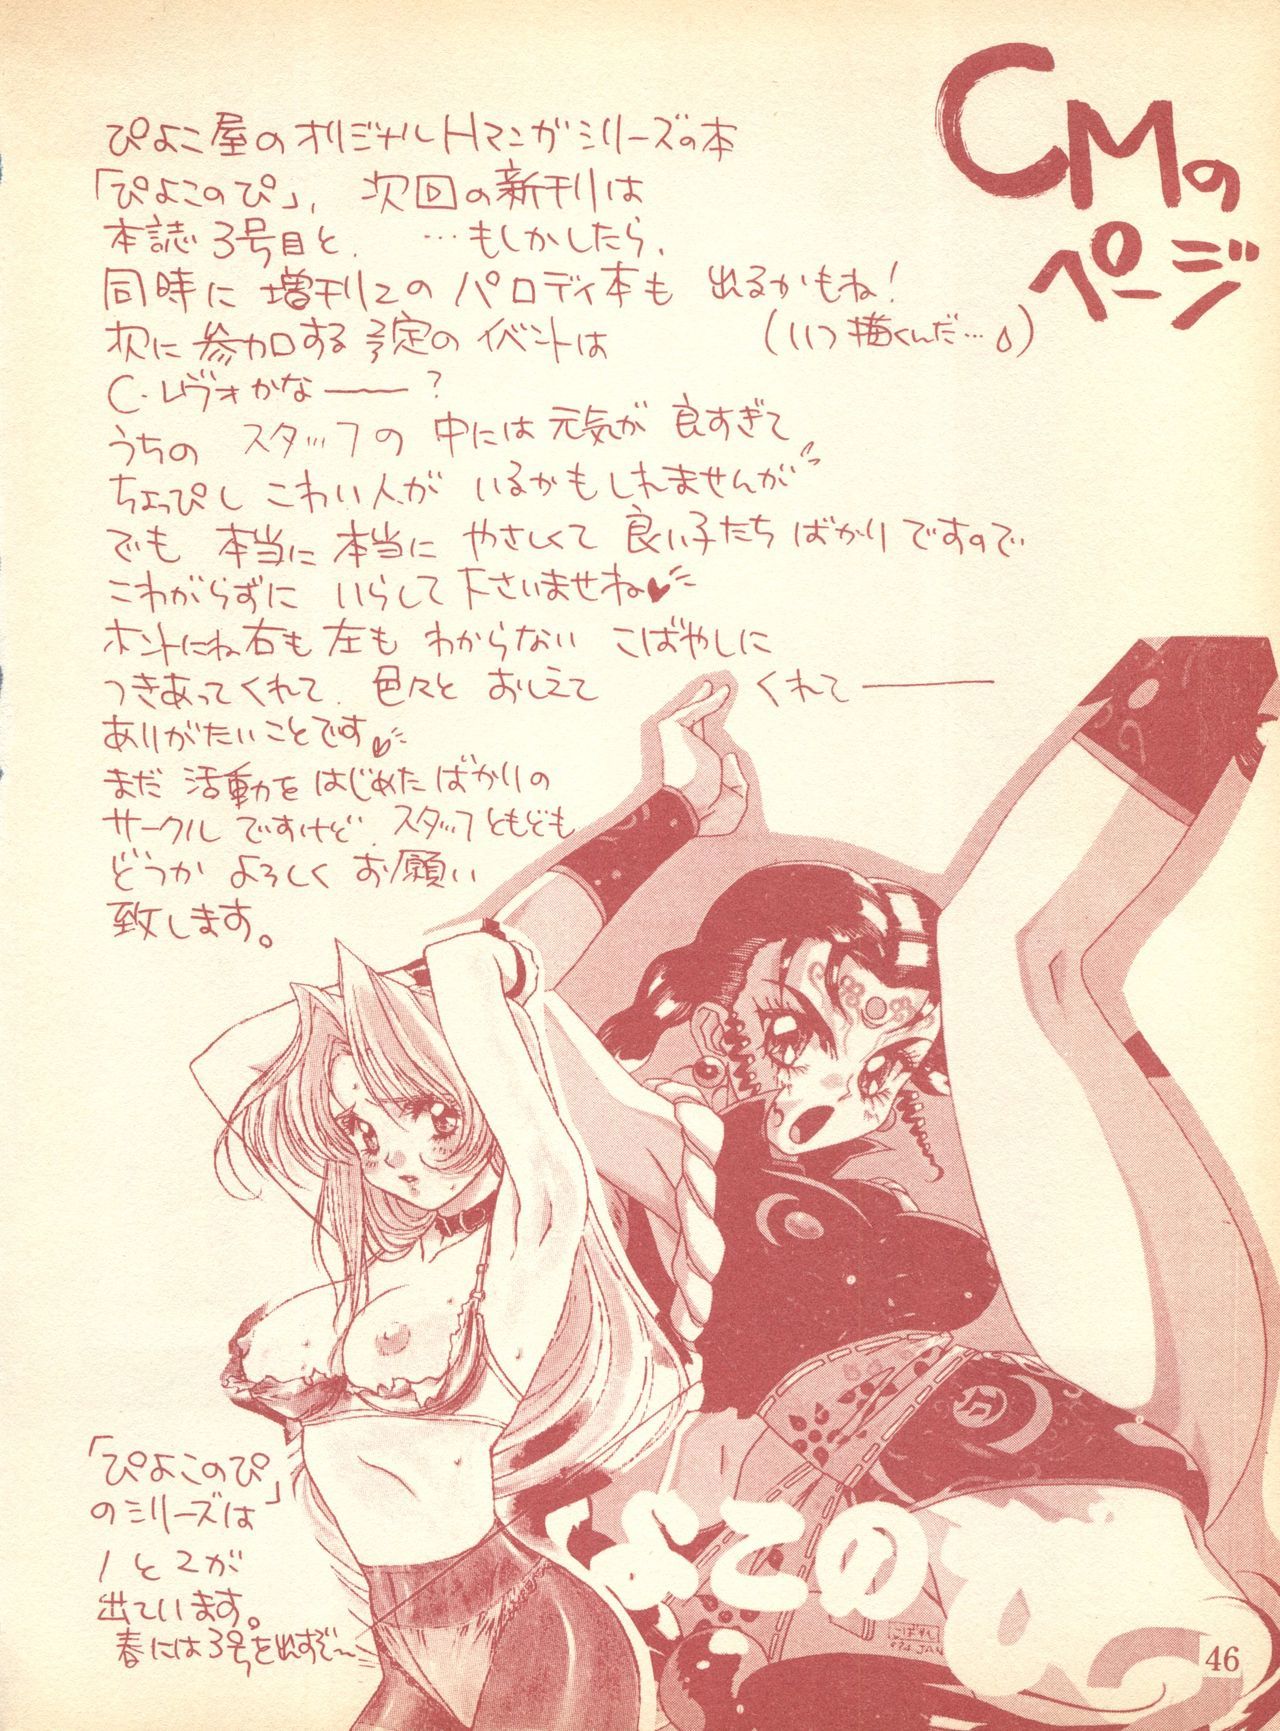 CMの
ページ
ぴよこ屋のオリジナルHマンガシリーズの本
「ぴよこのぴ」、次回の新刊は
本誌3号目と、…もしかしたら、
同時に増刊2のパロディ本も出るかもね！
(いつ描くんだ…)
次に参加する予定のイベントは
C・レヴォかな——？
うちのスタッフの中には元気が良すぎて
ちょっぴしこわい人がいるかもしれませんが
でも本当に本当にやさしくて良い子たちばかりですので
こわがらずにいらして下さいませね♥
ホントにね右も左もわからないこばやしに
つきあってくれて、色々とおしえてくれて——
ありがたいことです♥
まだ活動をはじめたばかりの
サークルですけど、スタッフともども
どうかよろしくお願い
致します。
「ぴよこのぴ」
のシリーズは
1と2が
出ています。
春には3号を出すぞ〜
よこのぴ
46